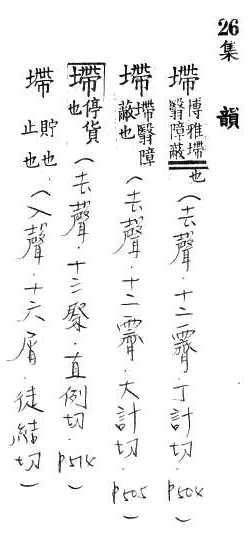 26
集韻
墆博雅墆翳障蔽也(去聲.十二霽.丁計切.P504)
墆墆翳障蔽也(去聲.十二霽.大計切.P505)
墆停貨也(去聲.十三祭.直例切.P514)
墆貯也止也(入聲.十六屑.徒結切)